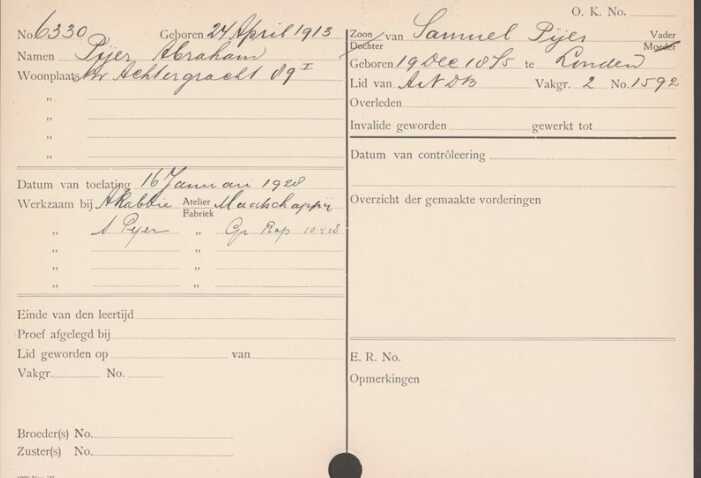 O. K. No.
No. 6330 Geboren 24 April 1913
Namen Pijer Abraham
Woonplaats Nw Achtergracht 89 I
"
"
"
"
Datum van toelating 16 Januari 1928
Werkzaam bij A Rabbie Atelier Fabriek Maatschappij
" S Pijer " Gr Rap 10-2-28
" "
" "
Einde van den leertijd
Proef afgelegd bij
Lid geworden op van
Vakgr. No.
Broeder(s) No.
Zuster(s) No.
Zoon Dochter van Samuel Pijes Vader Moeder
Geboren 19 Dec 1875 te Londen
Lid van ANDB Vakgr. 2 No. 1592
Overleden
Invalide geworden gewerkt tot
Datum van contrôleering
Overzicht der gemaakte vorderingen
E. R. No.
Opmerkingen